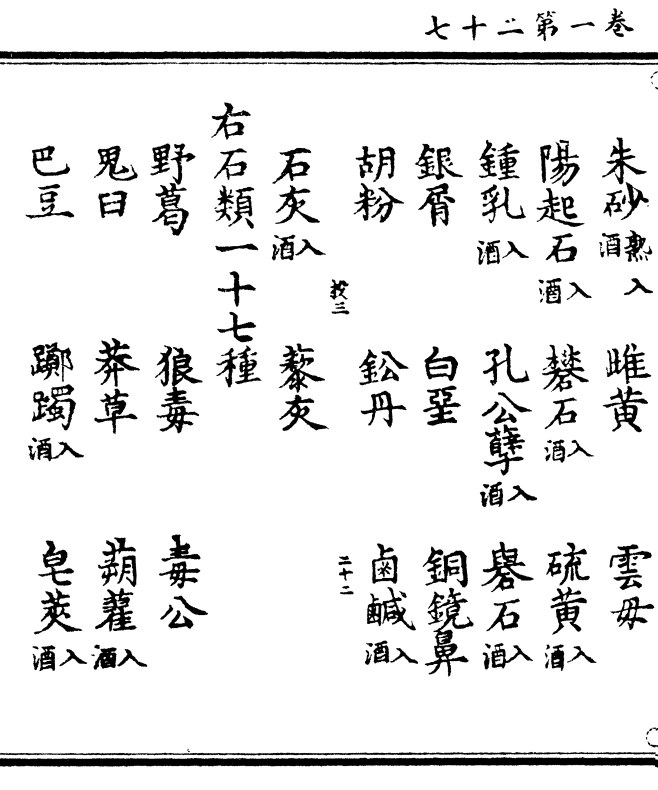 卷一第二十七
朱砂熟入酒 雌黄 雲母
陽起石入酒 礬石入酒 硫黄入酒
鍾乳入酒 孔公孽入酒 礜石入酒
銀屑 白堊 銅鏡鼻
胡粉 鈆丹 鹵鹹入酒
三 二十二
石灰入酒 藜灰
右石類一十七種
野葛 狼毒 毒公
鬼臼 莽草 蒴藋入酒
巴豆 躑躅入酒 皂莢入酒